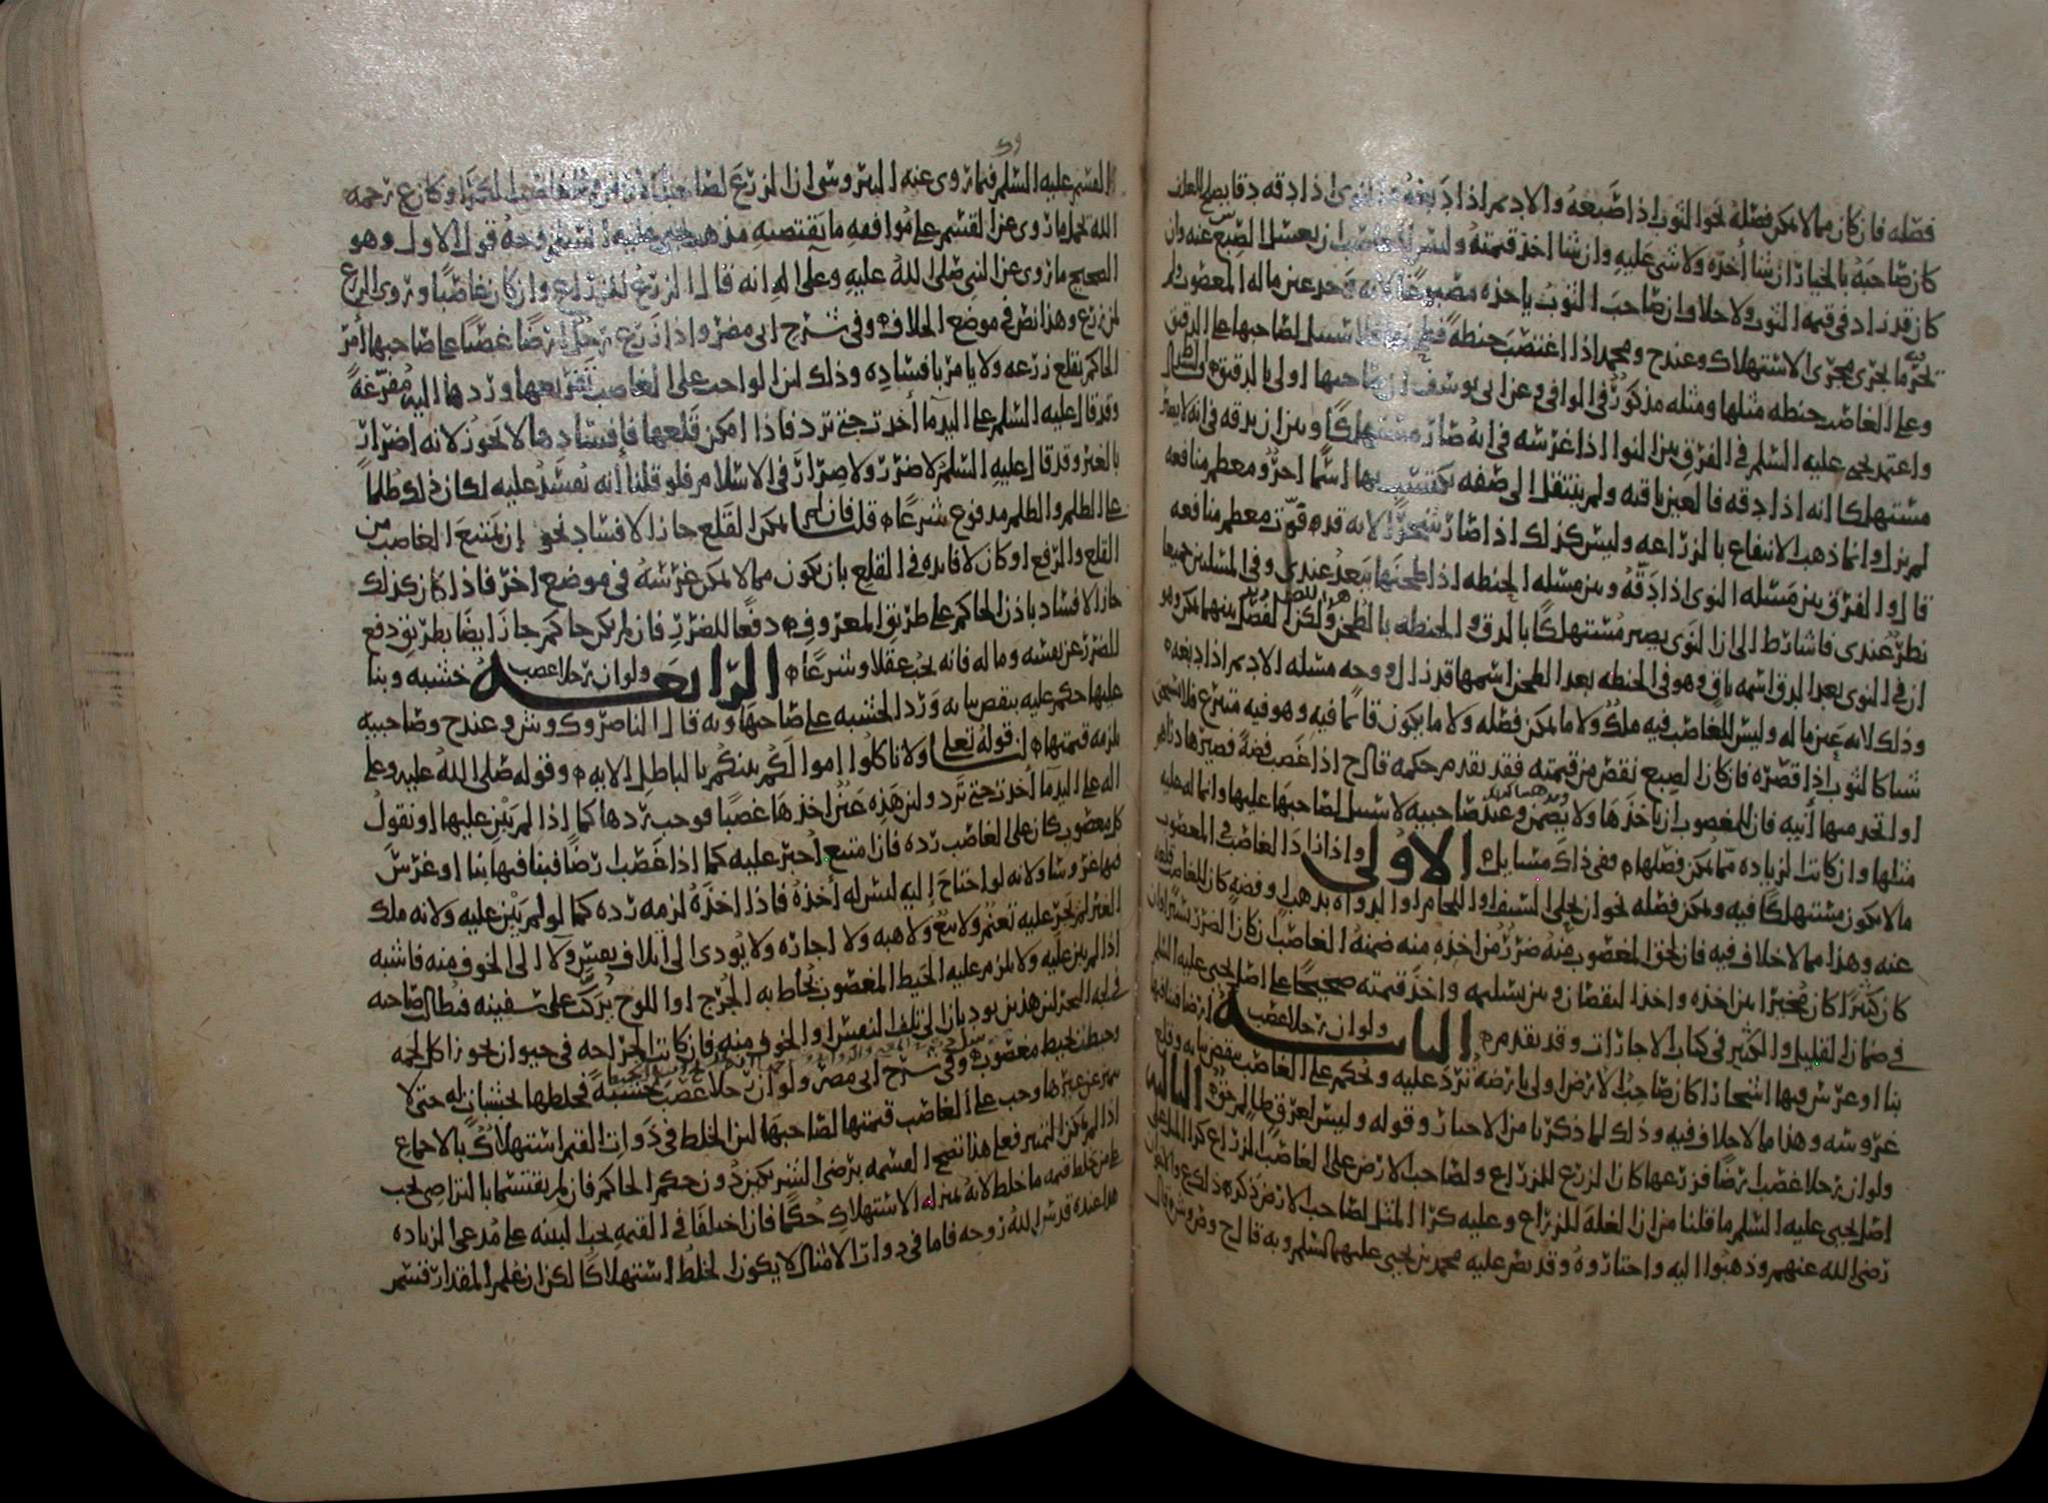 فصله فان كان مما لا يمكن فصله نحو الثوب اذا صبغه والاديم اذا دبغه او النوى اذا دقه دقا يصلح للعلف
كان صاحبه بالخيار ان شا أخذه ولا شي عليه وان شا اخذ قيمته وليس للغاصب ان يغسل الصبغ عنه وان
كان قد زاد في قيمه الثوب ولا خلاف ان صاحب الثوب ياخذه مصبوغا لانه وجد عين ماله المغصوب ولم
يجر ما يجري مجرى الاستهلاك وعند ح ومحمد اذا اغتصب حنطة فطحنها فلا سبيل لصاحبها على الدقيق
وعلى الغاصب حنطه مثلها ومثله مذكور في الوافي وعن ابي يوسف ان صاحبها اولى بالدقيق
واعتمد يحيى عليه السلم في الفرق بين النوا اذا غرسه في انه صار مستهلكا وبين ان يدقه في انه لا يصير
مستهلكا انه اذا دقه فالعين باقيه ولم ينتقل الى صفه يكتسب بها اسما اخر ومعظم منافعه
لم يزل وانما ذهب الانتفاع بالزراعه وليس كذلك اذا صار شجرا لانه قد فوت معظم منافعه
قالوا الفرق بين مسئله النوى اذا دقه وبين مسئله الحنطه اذا طحنها يبعد عندي وفي المسئلتين جميعا
نظر عندي فاشارط الى ان النوى يصير مستهلكا بالدق والحنطه بالطحن ولكن الفصل بينهما يمكن وهو
ان في النوى بعد الدق اسمه باق وهو في الحنطه بعد الطحن اسمها قد زال ووجه مسئله الاديم اذا دبغه
وذلك لانه عين ماله وليس للغاصب فيه ملك ولا ما يمكن فصله ولا ما يكون قائما فيه وهو فيه متبرع فلا يستحق
شيا كالثوب إذا قصره فان كان الصبغ نقص من قيمته فقد تقدم حكمه قال ح اذا غصب فضة فصيرها دراهم
او اتخذ منها آنيه فان للمغصوب ان ياخذها ولا يضمن وعند صاحبيه لا سبيل لصاحبها عليها وانما له عليه
مثلها وان كانت الزياده مما يمكن فصلها ففي ذلك مسايل الاولى واذا زاد الغاصب في المغصوب
ما لا يكون مستهلكا فيه ويمكن فصله نحو ان يحلي السيف او اللجام او الدواه بذهب او فضه كان للغاصب قلعه
عنه وهذا مما لا خلاف فيه فان لحق المغصوب منه ضرر من اخذه منه ضمنه الغاصب ان كان الضرر يسيرا وان
كان كثيرا كان مخيرا بين اخذه واخذ النقصان وبين تسليمه واخذ قيمته صحيحا على اصل يحيى عليه السلم
في ضمان القليل والكثير في كتاب الاجارات وقد تقدم الثانيه ولو ان رجلا غصب ارضا فبنا فيها
بنا او غرس فيها اشجارا كان صاحب الارض اولى بارضه ترد عليه ويحكم على الغاصب بنقض بنايه وقلع
غروسه وهذا مما لا خلاف فيه وذلك لما ذكرنا من الاخبار وقوله وليس لعرق ظالم حق الثالثه
ولو ان رجلا غصب ارضا فزرعها كان الزرع للزراع ولصاحب الارض على الغاصب الزراع كرا المثل على
اصل يحيى عليه السلم ما قلنا من ان الغله للزراع وعليه كرا المثل لصاحب الارض ذكره ذلك ع والاخوان
رضي الله عنهم وذهبوا اليه واختاروه وقد نص عليه محمد بن يحيى عليهما السلم وبه قال ح وص وش وقال
القسم عليه السلم فيما روى عنه النيروسي ان الزرع لصاحب الارض وكان ع رحمه
الله يحمل ما روى عن القسم على موافقه ما يقتضيه مذهب يحيى عليه السلم وجه قول الاول وهو
الصحيح ما روى عن النبي صلى الله عليه وعلى اله انه قال الزرع للزراع وان كان غاصبا وروى الزرع
لمن زرع وهذا نص في موضع الخلاف وفي شرح ابي مضر واذا زرع رجل ارضا غصبا على صاحبها أمر
الحاكم بقلع زرعه ولا يامر بافساده وذلك لان الواجب على الغاصب تفريغها وردها اليه مفرغة
وقد قال عليه السلم على اليد ما أخذت حتى ترد فاذا امكن قلعها فإفسادها لا يجوز لانه اضرار
بالغير وقد قال عليه السلم لا ضرر ولا ضرار في الاسلام فلو قلنا انه يفسد عليه لكان ذلك ظلما
على الظلم والظلم مدفوع شرعا قلت فان لم يمكن القلع جاز الافساد نحو إن يمتنع الغاصب من
القلع والرفع او كان لا فايده في القلع بان يكون مما لا يمكن غرسه في موضع اخر فاذا كان كذلك
جاز الافساد باذن الحاكم على طريق المعروف دفعا للضرر فان لم يكن حاكم جاز ايضا بطريق دفع
الضرر عن نفسه وماله فانه يجب عقلا وشرعا الرابعه ولو ان رجلا غصب خشبه وبنا
عليها حكم عليه بنقض بنايه ورد الخشبه على صاحبها وبه قال الناصر وك وش وعند ح وصاحبيه
يلزمه قيمتها لنا قوله تعلى ولا تاكلوا اموالكم بينكم بالباطل الايه وقوله صلى الله عليه وعلى
اله على اليد ما أخذت حتى ترد ولان هذه عين اخذها غصبا فوجب ردها كما اذا لم يبن عليها او نقول
كل مغصوب كان على الغاصب رده فان امتنع اجبر عليه كما اذا غصب ارضا فبنا فيها بنا او غرس
فيها غروسا ولانه لو احتاج إليه ليس له أخذه فاذا اخذه لزمه رده كما لو لم يبن عليه ولانه ملك
الغير لم يجر عليه تغير ولا بيع ولا هبه ولا اجاره ولا يودي الى اتلاف نفس ولا الى الخوف منه فاشبه
اذا لم يبن عليه ولا يلزم عليه الخيط المغصوب يخاط به الجرح او اللوح يركب على سفينه فيطالب صاحبه
في لجه البحر لان هذين يوديان الى تلف النفس او الخوف منه فان كانت الجراحه في حيوان يجوز اكل لحمه
وخيطت بخيط مغصوب وفي شرح ابي مضر ولو ان رجلا غصب خشبة فخلطها بخشبات له حتى لا
يميز عن غيرها وجب على الغاصب قيمتها لصاحبها لان الخلط في ذوات القيم استهلاك بالاجماع
اذا لم يمكن التمييز فعلى هذا تصح القسمه برضى الشريكين دون حكم الحاكم فان لم يقتسما بالتراضي يجب
على من خلط قيمه ما خلط لانه بمنزله الاستهلاك حكما فان اختلفا في القيمه يجب البينه على مدعي الزياده
هذا عنده قدس الله روحه فاما في ذوات الامثال لا يكون الخلط استهلاكا لكن ان يعلم المقدار قسم